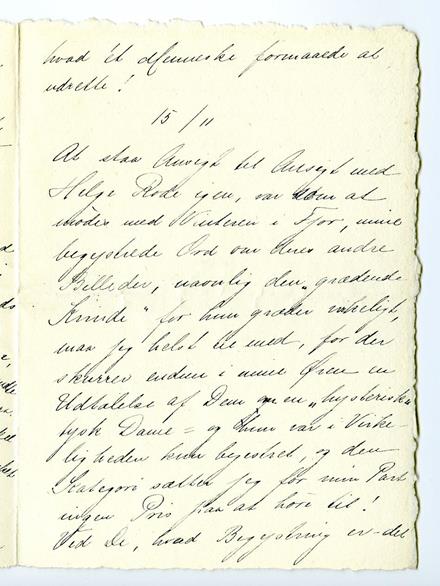 hvad ét Menneske formaaede at
udrette!
15/11
At staa Ansigt til Ansigt med
Helge Rode igen, var som at
mødes med Vinteren i Fjor, mine
begejstrede Ord om Deres andre
Billeder, navnlig den „grædende
Kvinde" for hun græder virkeligt,
maa jeg helst tie med, for der
skurrer endnu i mine Øren en
Udtalelse af Dem om en „hysterisk"
tysk Dame = og hun var i Virke-
ligheden kun begejstret, og den
Kategori sætter jeg for min Part
ingen Pris paa at høre til!
Ved De, hvad Begejstring er - det